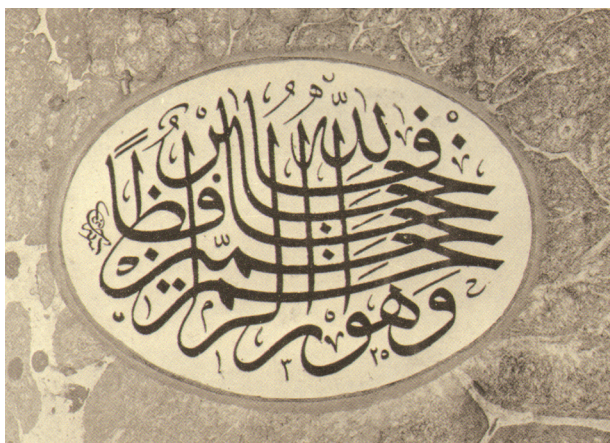 فالله خير حافظاً
وهو ارحم الراحمين
١٣٢٥